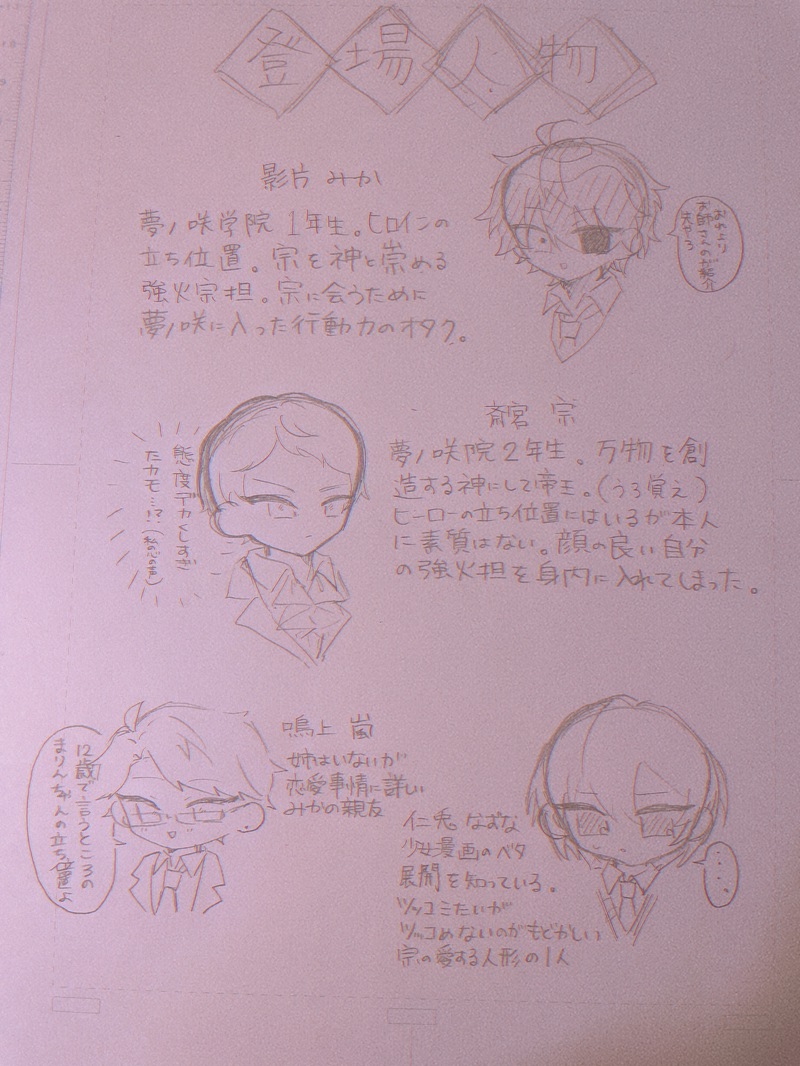 登場人物
影片 みか
夢ノ咲学院 1年生。ヒロインの
立ち位置。宗を神と崇める
強火宗担。宗に会うために
夢ノ咲に入った行動力のオタク。
おれより
お師さんのが紹介
先やろ
斎宮 宗
夢ノ咲院2年生。万物を創
造する神にして帝王。(うろ覚え)
ヒーローの立ち位置にはいるが本人
に素質はない。顔の良い自分
の強火担を身内に入れてしまった。
態度デカくしすぎ
たカモ…!?(私の心の声)
鳴上 嵐
姉はいないが
恋愛事情に詳しい
みかの親友
12歳で言うところの
まりんちゃんの立ち位置よ
仁兎 なずな
少女漫画のベタ
展開を知っている。
ツッコミたいが
ツッコめないのがもどかしい
宗の愛する人形の1人
....